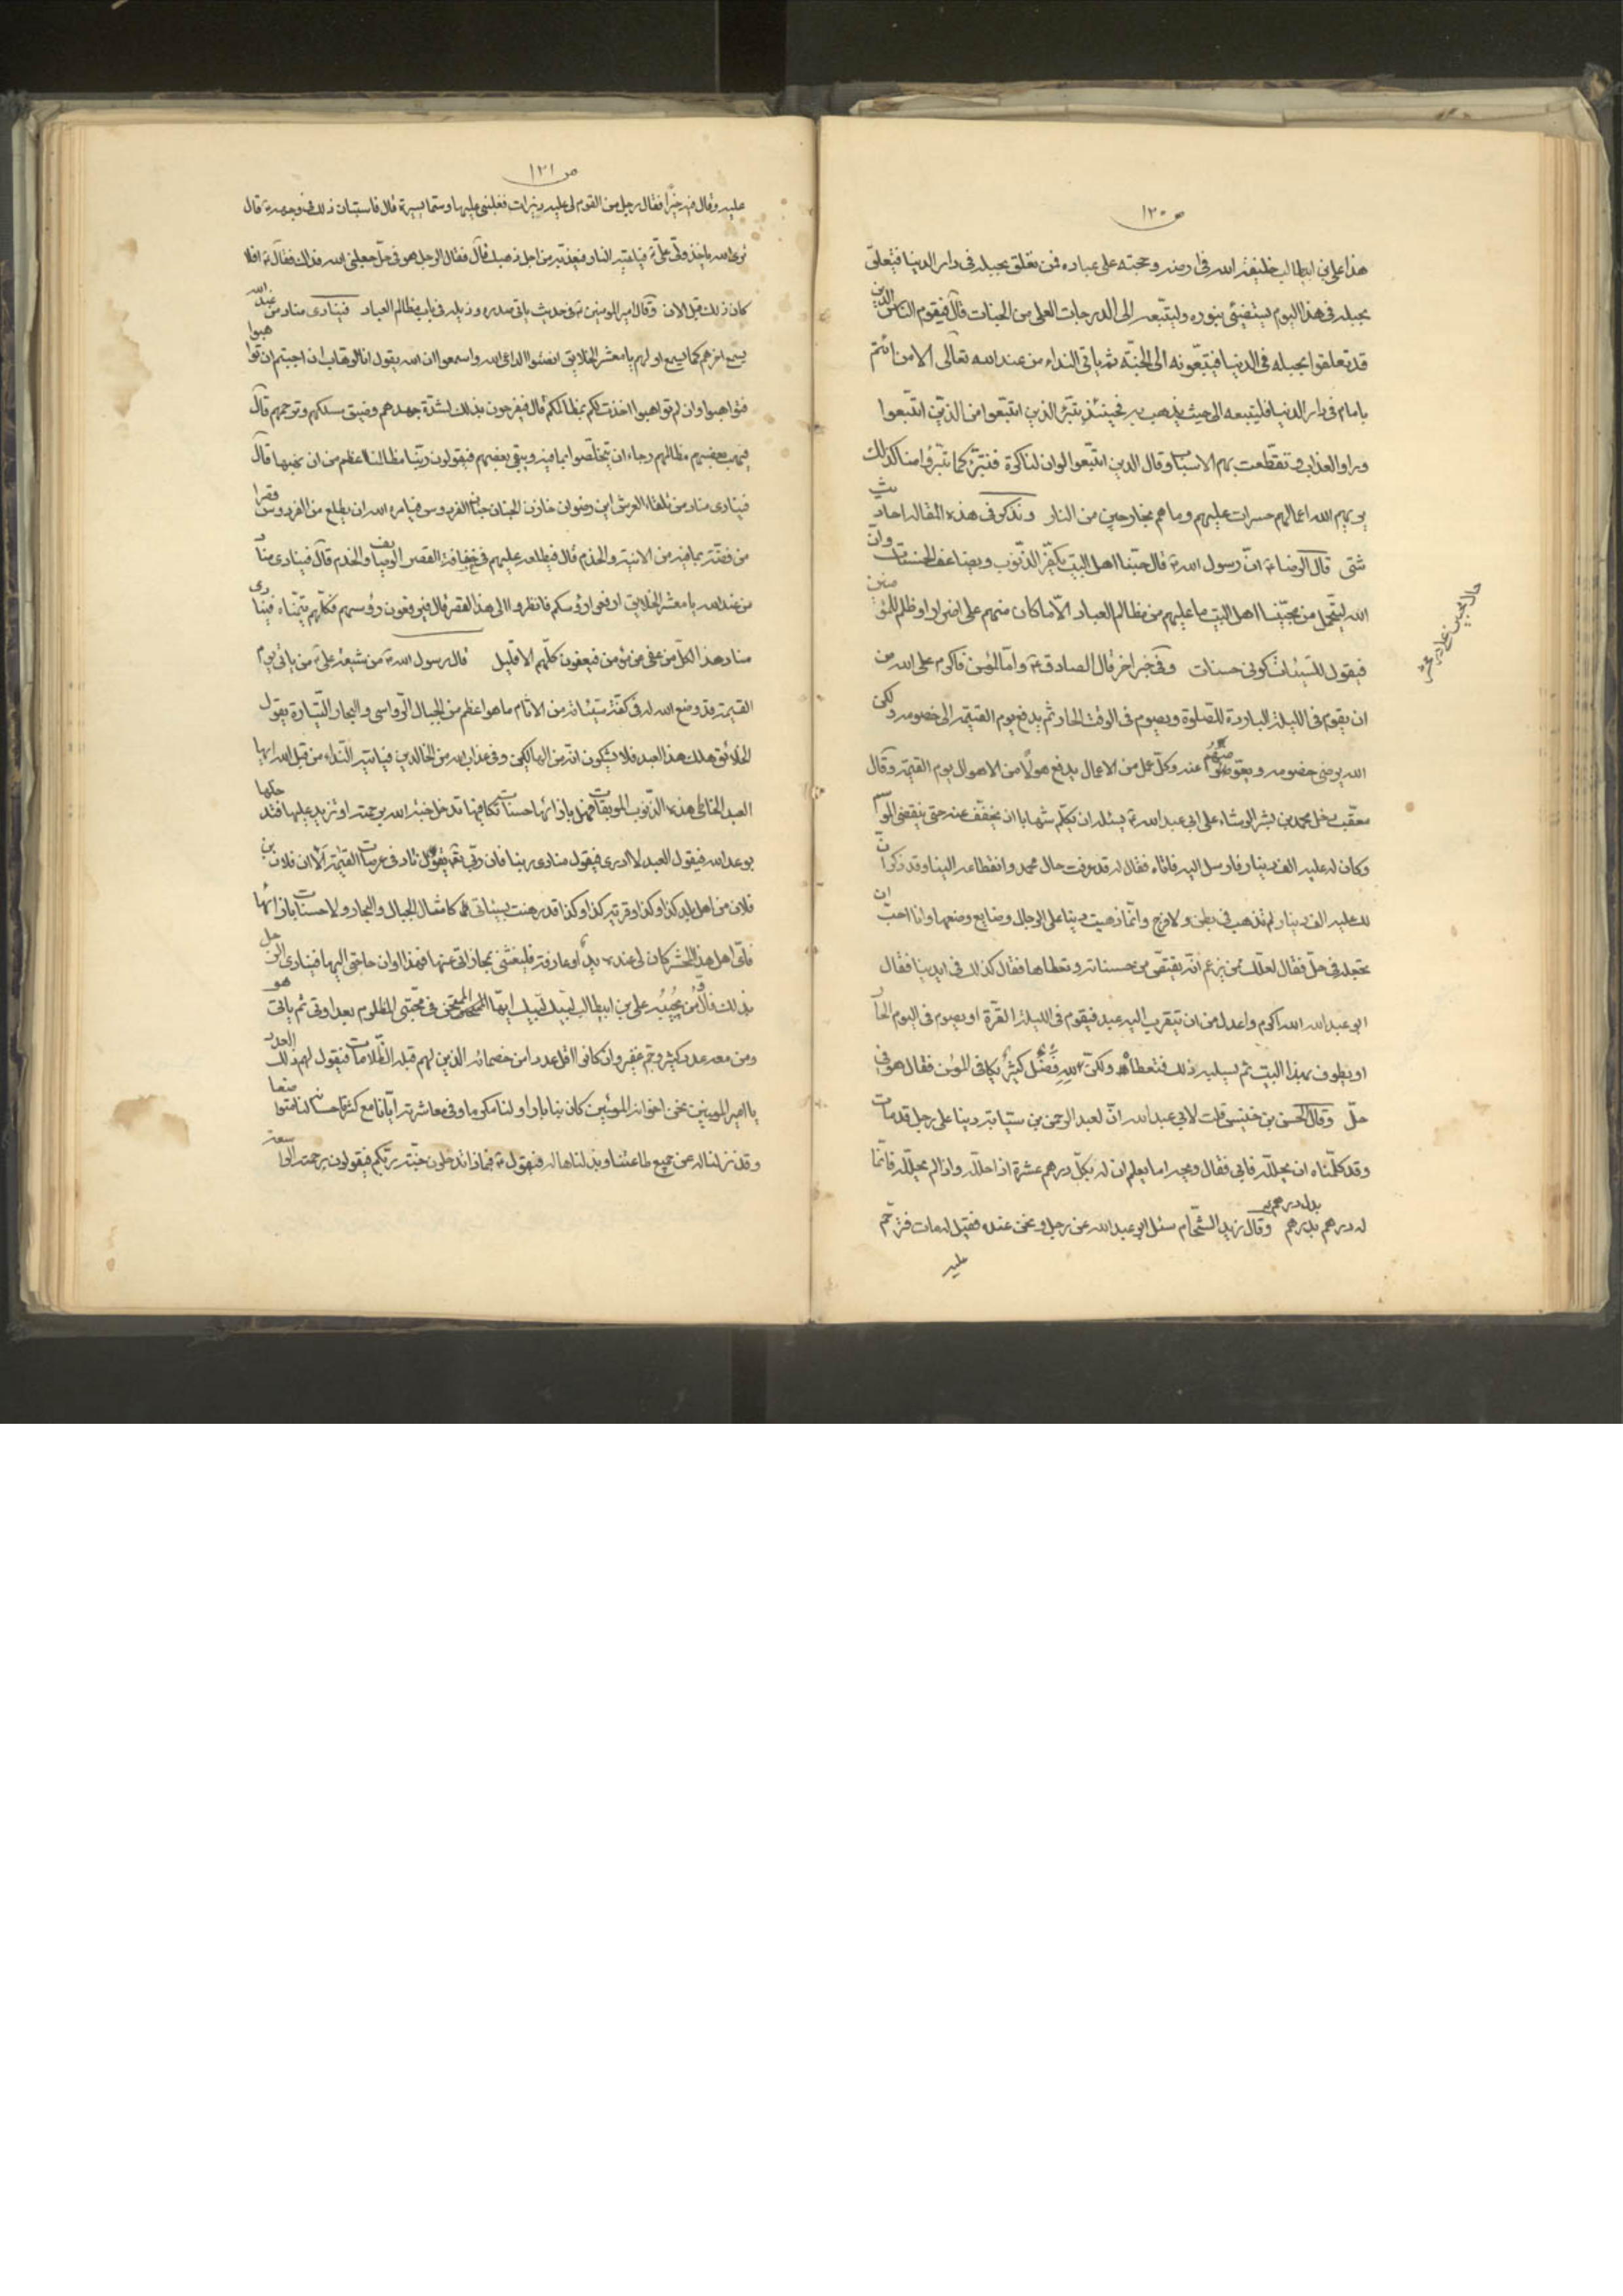 ص ١٢٠
هذا علي بن ابيطالب خليفة الله في ارضه وحجته على عباده فمن تعلق بحبله في دار الدنيا فليتعلق
بحبله في هذا اليوم ليستضيئ بنوره وليتبعه الى الدرجات العلى من الجنات قال فيقوم الناس الذين
قد تعلقوا بحبله في الدنيا فيتبعونه الى الجنة ثم ياتي النداء من عند الله تعالى الا من ائتم
بامام في دار الدنيا فليتبعه الى حيث يذهب به فحينئذ يتبرء الذين اتبعوا من الذين اتبعوا
وراوا العذاب وتقطعت بهم الاسباب وقال الذين اتبعوا لو ان لنا كرة فنتبرء كما تبرؤا منا كذلك
يريهم الله اعمالهم حسرات عليهم وما هم بخارجين من النار ونذكر في هذه المقالة احاديث
شتى قال الرضا ع ان رسول الله ص قال حبنا اهل البيت يكفر الذنوب ويضاعف الحسنات وان
الله ليتحمل من محبينا اهل البيت ما عليهم من مظالم العباد الا ما كان منهم على اضرار او ظلم للمؤمنين
فيقول للسيئات كوني حسنات وفي خبر اخر قال الصادق ع واما المؤمن فاكرم على الله من
ان يقوم في الليلة الباردة للصلوة ويصوم في الوقت الحار ثم يدفع يوم القيمة الى خصومه ولكن
الله يرضى خصومه ويعوضهم عنه وكل عمل من الاعمال يدفع هولا من الاهوال يوم القيمة وقال
معتب دخل محمد بن بشر الوشاء على ابي عبد الله ع يسئله ان يكلم شهابا ان يخفف عنه حتى ينقضي الموسم
وكان له عليه الف دينار فارسل اليه فاتاه فقال له قد عرفت حال محمد وانقطاعه الينا وقد ذكر ان
لك عليه الف دينار لم تذهب في بطن ولا فرج وانما ذهبت دينا على الرجال وضايع وضعها وانا احب ان
تجعله في حل فقال لعلك ممن يزعم انه يقتص من حسناته وتعطاها فقال كذلك في ايدينا فقال
ابو عبد الله الله اكرم واعدل من ان يتقرب اليه عبد فيقوم في الليلة القرة او يصوم في اليوم الحار
او يطوف بهذا البيت ثم يسلبه ذلك فتعطاه ولكن لله فضل كثير يكافي المؤمن فقال هو في
حل وقال الحسن بن خنيس قلت لابي عبد الله ان لعبد الرحمن بن سيابة دينا على رجل قد مات
وقد كلمناه ان يحلله فابى فقال ويحه اما يعلم ان له بكل درهم عشرة اذا حلله واذا لم يحلله فانما
له درهم بدرهم بدل درهم وقال زيد الشحام سئل ابو عبد الله عن رجل ونحن عنده فقيل له مات فترحم
عليه
ص ١٢١
عليه وقال فيه خيرا فقال رجل من القوم لي عليه دنيرات فغلبني عليها وسماها يسيرة قال فاستبان ذلك في وجهه ع قال
كان ذلك قبل الان وقال امير المؤمنين ع في حديث ياتي صدره وذيله في باب مظالم العباد فينادي مناد من عند الله
يسمع اخرهم كما يسمع اولهم يا معشر الخلايق انصتوا لداعي الله واسمعوا ان الله يقول انا الوهاب ان احببتم ان تواهبوا
فتواهبوا وان لم تواهبوا اخذت لكم بمظالمكم قال فيفرحون بذلك لشدة جهدهم وضيق مسلكهم وتزحمهم قال
فيهب بعضهم مظالمهم رجاء ان يتخلصوا مما فيه ويبقى بعضهم فيقولون ربنا مظالمنا اعظم من ان نهبها قال
فينادي مناد من تلقاء العرش اين رضوان خازن الجنان جنان الفردوس فيامره الله ان يطلع من الفردوس قصرا
من فضة بما فيه من الانية والخدم قال فيطلعه عليهم في حفافة القصر الوصايف والخدم قال فينادي مناد
من عند الله يا معشر الخلايق ارفعوا رؤسكم فانظروا الى هذا القصر قال فيرفعون رؤسهم فكلهم يتمناه فينادي
مناد هذا لكل من عفى عن مؤمن فيعفون كلهم الا قليل قال رسول الله ص من شيعة علي ع من ياتي يوم
القيمة قد وضع الله له في كفة سيئاته من الاثام ما هو اعظم من الجبال الرواسي والبحار التيارة يقول
الخلائق هلك هذا العبد فلا يشكون انه من الهالكين وفي عذاب الله من الخالدين فياتيه النداء من قبل الله ايها
العبد الخاطي هذه الذنوب الموبقات فهل بازائها حسنات تكافيها تدخل جنة الله برحمته او تزيد عليها فتدخلها
بوعد الله فيقول العبد لا ادري فيقول منادي ربنا فان ربي يقول ناد في عرصات القيمة الا ان فلان بن
فلان من اهل بلد كذا وكذا وقرية كذا وكذا قد رهنت بسيئاتي كامثال الجبال والبحار ولا حسنات بازائها
فاي اهل هذا المحشر كان لي عنده يد او عارفة فليغثني بمجازاتي عنها فهذا اوان حاجتي اليها فينادي الرجل
بذلك فاول من يجيبه علي بن ابيطالب لبيك لبيك ايها الممتحن في محبتي المظلوم بعداوتي ثم ياتي هو
ومن معه عدد كثير وجم غفير وان كانوا اقل عددا من خصمائه الذين لهم قبله الظلامات فيقول لهم ذلك العدد
يا امير المؤمنين نحن اخوانه المؤمنين كان بنا بارا ولنا مكرما وفي معاشرته ايانا مع كثرة احسانه لنا متواضعا
وقد نزلنا له عن جميع طاعتنا وبذلناها له فيقول ع فبماذا تدخلون جنة ربكم فيقولون برحمته الواسعة